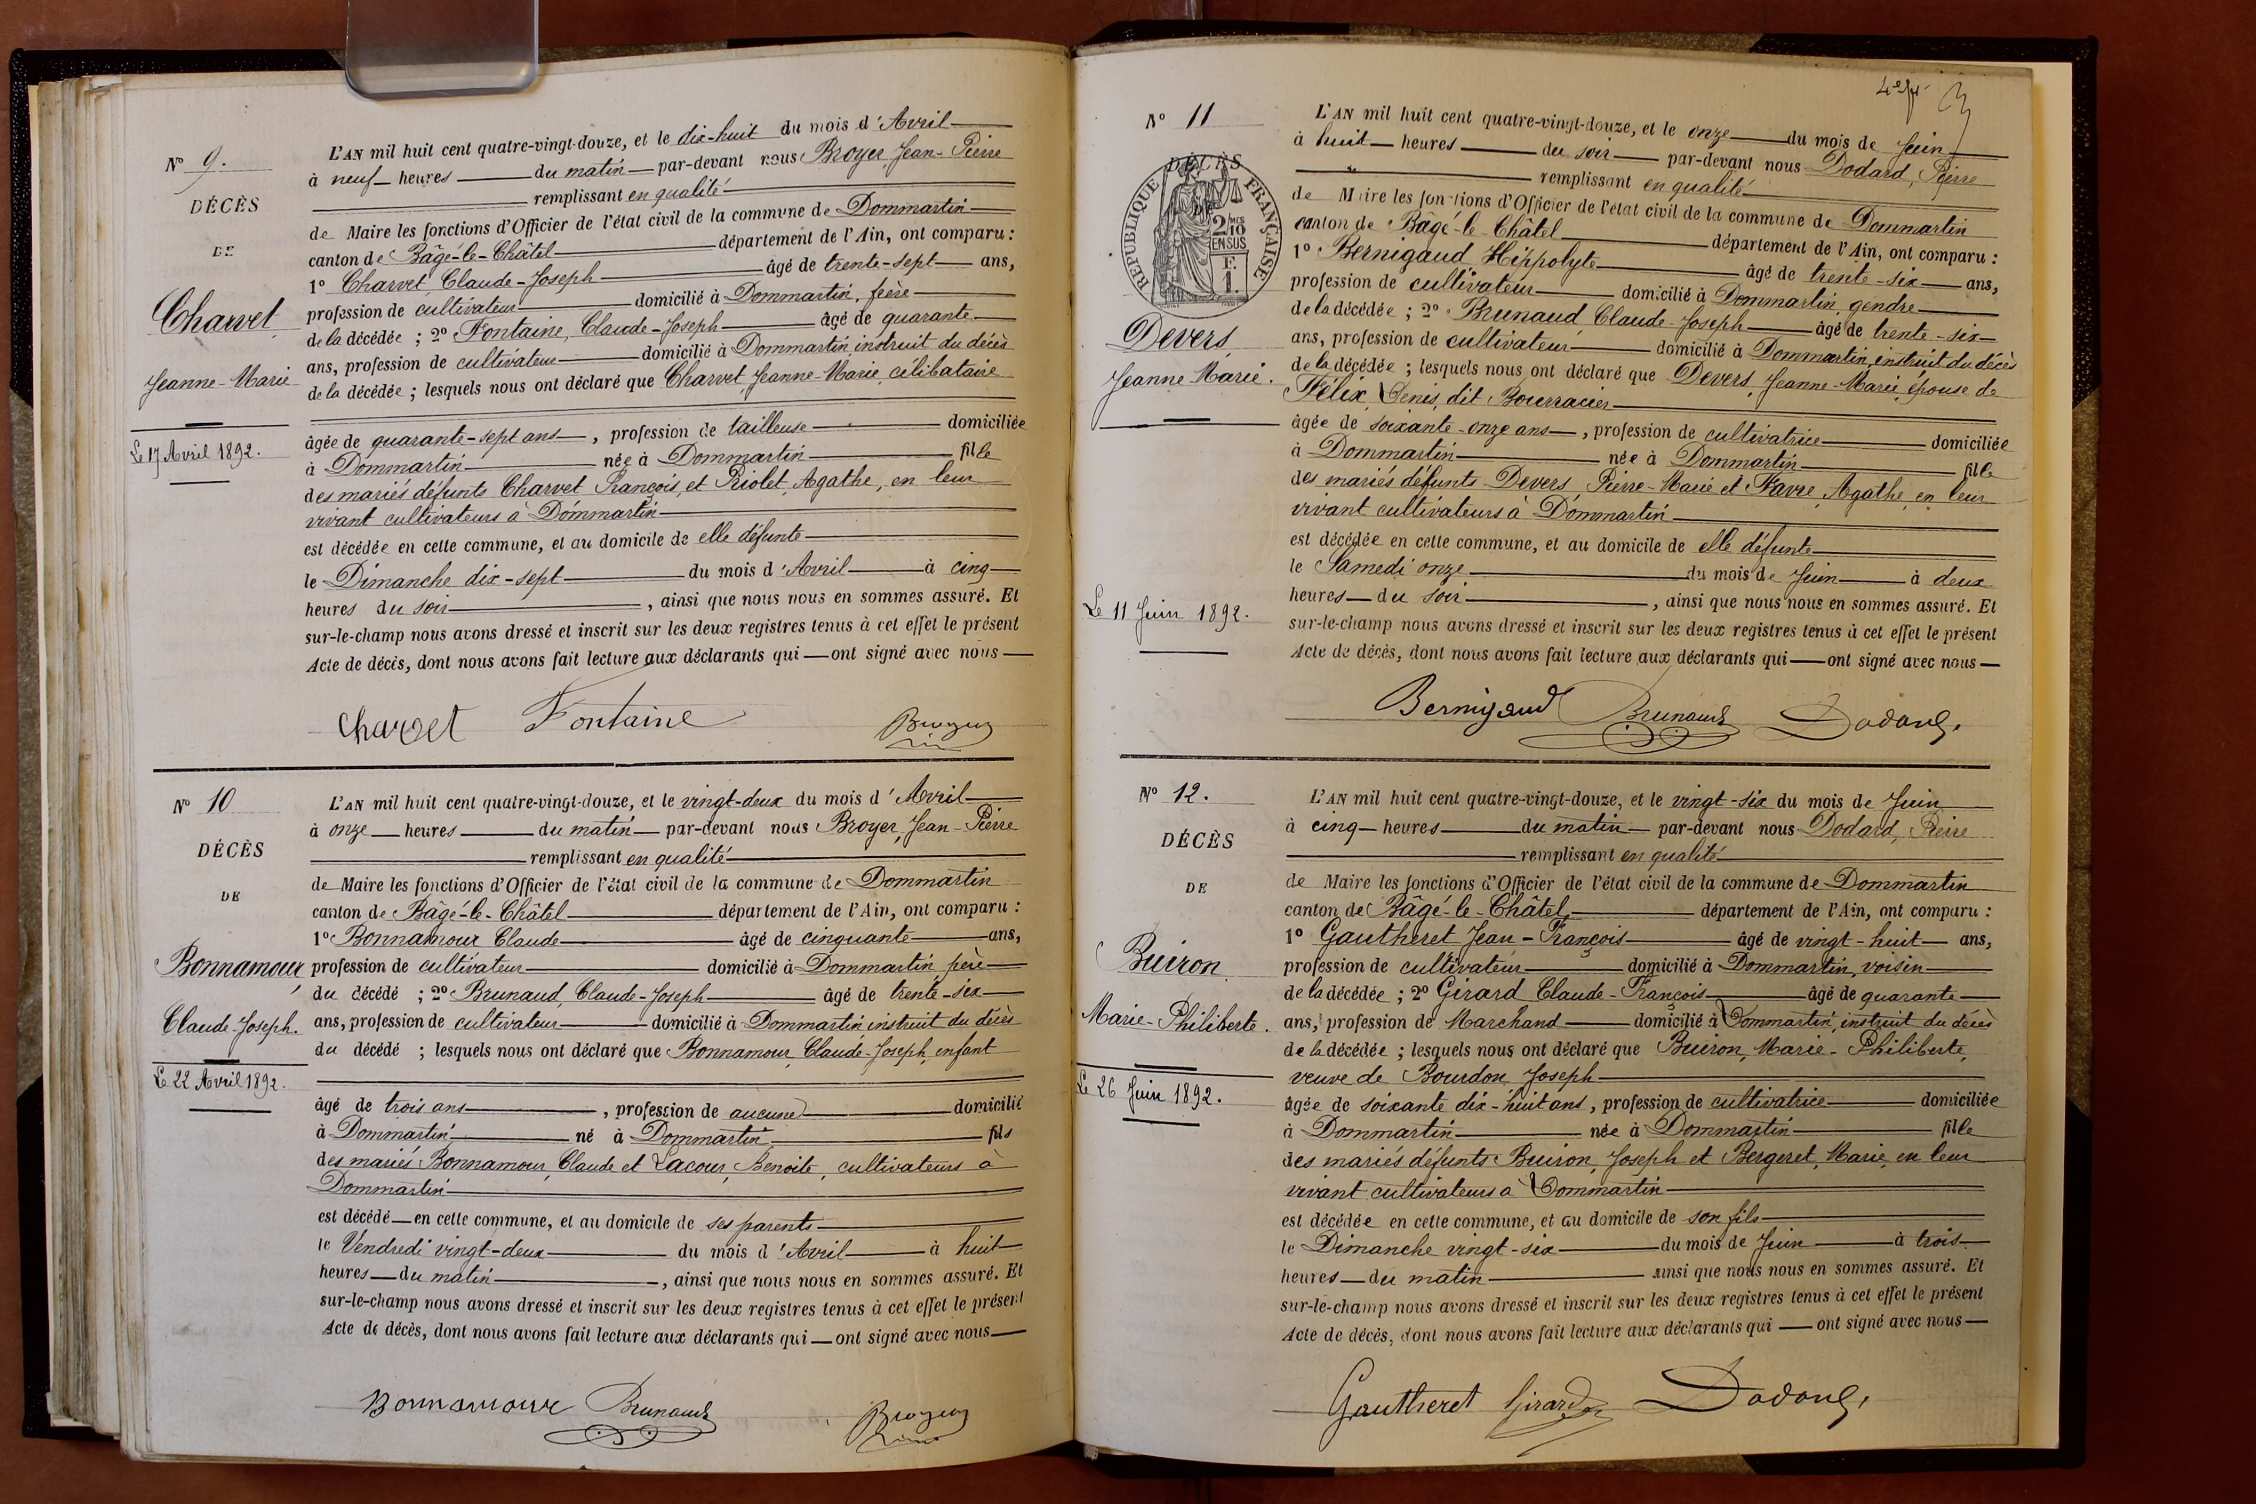 N° 9.
DÉCÈS
DE
Charvet
Jeanne-Marie
Le 17 Avril 1892.
L'AN mil huit cent quatre-vingt-douze, et le dix-huit du mois d'Avril
à neuf heures du matin par-devant nous Broyer Jean-Pierre
remplissant en qualité
de Maire les fonctions d'Officier de l'état civil de la commune de Dommartin
canton de Bâgé-le-Châtel département de l'Ain, ont comparu :
1° Charvet Claude-Joseph âgé de trente-sept ans,
profession de cultivateur domicilié à Dommartin, frère
de la décédée ; 2° Fontaine, Claude-Joseph âgé de quarante
ans, profession de cultivateur domicilié à Dommartin, instruit du décès
de la décédée ; lesquels nous ont déclaré que Charvet, Jeanne-Marie, célibataire
âgée de quarante-sept ans, profession de tailleuse domiciliée
à Dommartin née à Dommartin fille
des mariés défunts Charvet François, et Priolet, Agathe, en leur
vivant cultivateurs à Dommartin
est décédée en cette commune, et au domicile de elle défunte
le Dimanche dix-sept du mois d'Avril à cinq
heures du soir, ainsi que nous nous en sommes assuré. Et
sur-le-champ nous avons dressé et inscrit sur les deux registres tenus à cet effet le présent
Acte de décès, dont nous avons fait lecture aux déclarants qui ont signé avec nous
Charvet Fontaine Broyer
N° 10
DÉCÈS
DE
Bonnamour,
Claude-Joseph.
Le 22 Avril 1892.
L'AN mil huit cent quatre-vingt-douze, et le vingt-deux du mois d'Avril
à onze heures du matin par-devant nous Broyer, Jean-Pierre
remplissant en qualité
de Maire les fonctions d'Officier de l'état civil de la commune de Dommartin
canton de Bâgé-le-Châtel département de l'Ain, ont comparu :
1° Bonnamour Claude âgé de cinquante ans,
profession de cultivateur domicilié à Dommartin, père
du décédé ; 2° Brunaud, Claude-Joseph âgé de trente-six
ans, profession de cultivateur domicilié à Dommartin instruit du décès
du décédé ; lesquels nous ont déclaré que Bonnamour, Claude-Joseph, enfant
âgé de trois ans, profession de aucune domicilié
à Dommartin né à Dommartin fils
des mariés Bonnamour, Claude et Lacour, Benoite, cultivateurs à
Dommartin
est décédé en cette commune, et au domicile de ses parents
le Vendredi vingt-deux du mois d'Avril à huit
heures du matin, ainsi que nous nous en sommes assuré. Et
sur-le-champ nous avons dressé et inscrit sur les deux registres tenus à cet effet le présent
Acte de décès, dont nous avons fait lecture aux déclarants qui ont signé avec nous
Bonnamour Brunaud Broyer
N° 11
RÉPUBLIQUE FRANÇAISE
DÉCÈS
DE
2/10 MES
EN SUS
F.
1.
Devers
Jeanne Marie.
Le 11 Juin 1892.
L'AN mil huit cent quatre-vingt-douze, et le onze du mois de Juin
à huit heures du soir par-devant nous Dodard, Pierre
remplissant en qualité
de Maire les fonctions d'Officier de l'état civil de la commune de Dommartin
canton de Bâgé-le-Châtel département de l'Ain, ont comparu :
1° Bernigaud Hippolyte âgé de trente-six ans,
profession de cultivateur domicilié à Dommartin, gendre
de la décédée ; 2° Brunaud, Claude-Joseph âgé de trente-six
ans, profession de cultivateur domicilié à Dommartin, instruit du décès
de la décédée ; lesquels nous ont déclaré que Devers, Jeanne-Marie, épouse de
Félix, Denis, dit Bourracier
âgée de soixante-onze ans, profession de cultivatrice domiciliée
à Dommartin née à Dommartin fille
des mariés défunts Devers, Pierre-Marie et Favre, Agathe, en leur
vivant cultivateurs à Dommartin
est décédée en cette commune, et au domicile de elle défunte
le Samedi onze du mois de Juin à deux
heures du soir, ainsi que nous nous en sommes assuré. Et
sur-le-champ nous avons dressé et inscrit sur les deux registres tenus à cet effet le présent
Acte de décès, dont nous avons fait lecture aux déclarants qui ont signé avec nous
Bernigaud Brunaud Dodard,
N° 12.
DÉCÈS
DE
Buiron
Marie-Philiberte.
Le 26 Juin 1892.
L'AN mil huit cent quatre-vingt-douze, et le vingt-six du mois de Juin
à cinq heures du matin par-devant nous Dodard, Pierre
remplissant en qualité
de Maire les fonctions d'Officier de l'état civil de la commune de Dommartin
canton de Bâgé-le-Châtel, département de l'Ain, ont comparu :
1° Gautheret Jean-François âgé de vingt-huit ans,
profession de cultivateur domicilié à Dommartin, voisin
de la décédée ; 2° Girard Claude-François âgé de quarante
ans, profession de Marchand domicilié à Dommartin, instruit du décès
de la décédée ; lesquels nous ont déclaré que Buiron, Marie-Philiberte,
veuve de Bourdon, Joseph
âgée de soixante dix-huit ans, profession de cultivatrice domiciliée
à Dommartin née à Dommartin fille
des mariés défunts Buiron, Joseph et Bergeret, Marie, en leur
vivant cultivateurs à Dommartin
est décédée en cette commune, et au domicile de son fils
le Dimanche vingt-six du mois de Juin à trois
heures du matin ainsi que nous nous en sommes assuré. Et
sur-le-champ nous avons dressé et inscrit sur les deux registres tenus à cet effet le présent
Acte de décès, dont nous avons fait lecture aux déclarants qui ont signé avec nous
Gautheret Girard Dodard,